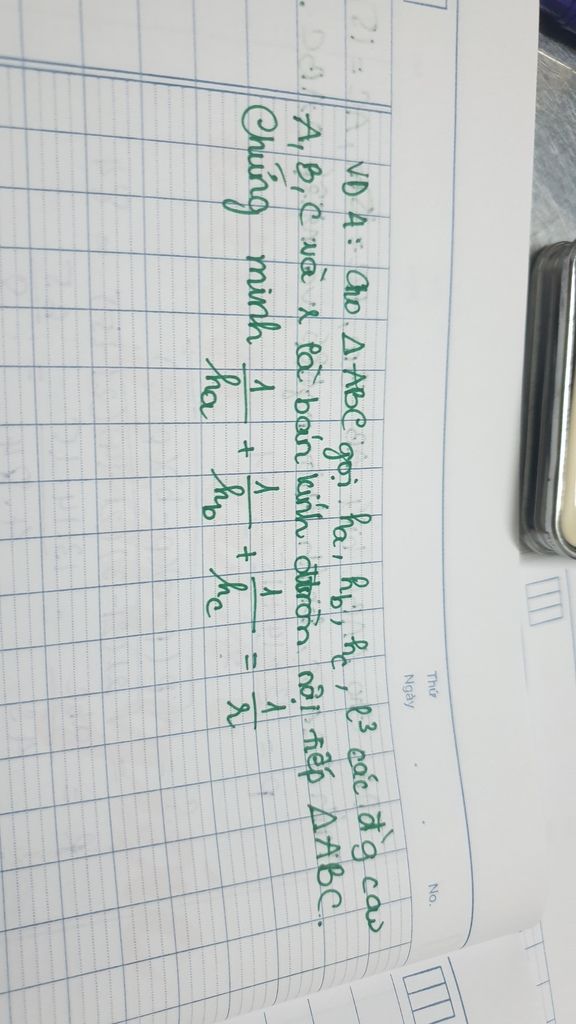 VD 4: Cho ΔABC gọi ha, hb, hc, l³ các đ'g cao
A, B, C và r là bán kính đtròn nội tiếp ΔABC.
Chứng minh 1/ha + 1/hb + 1/hc = 1/r
Thứ
Ngày
No.